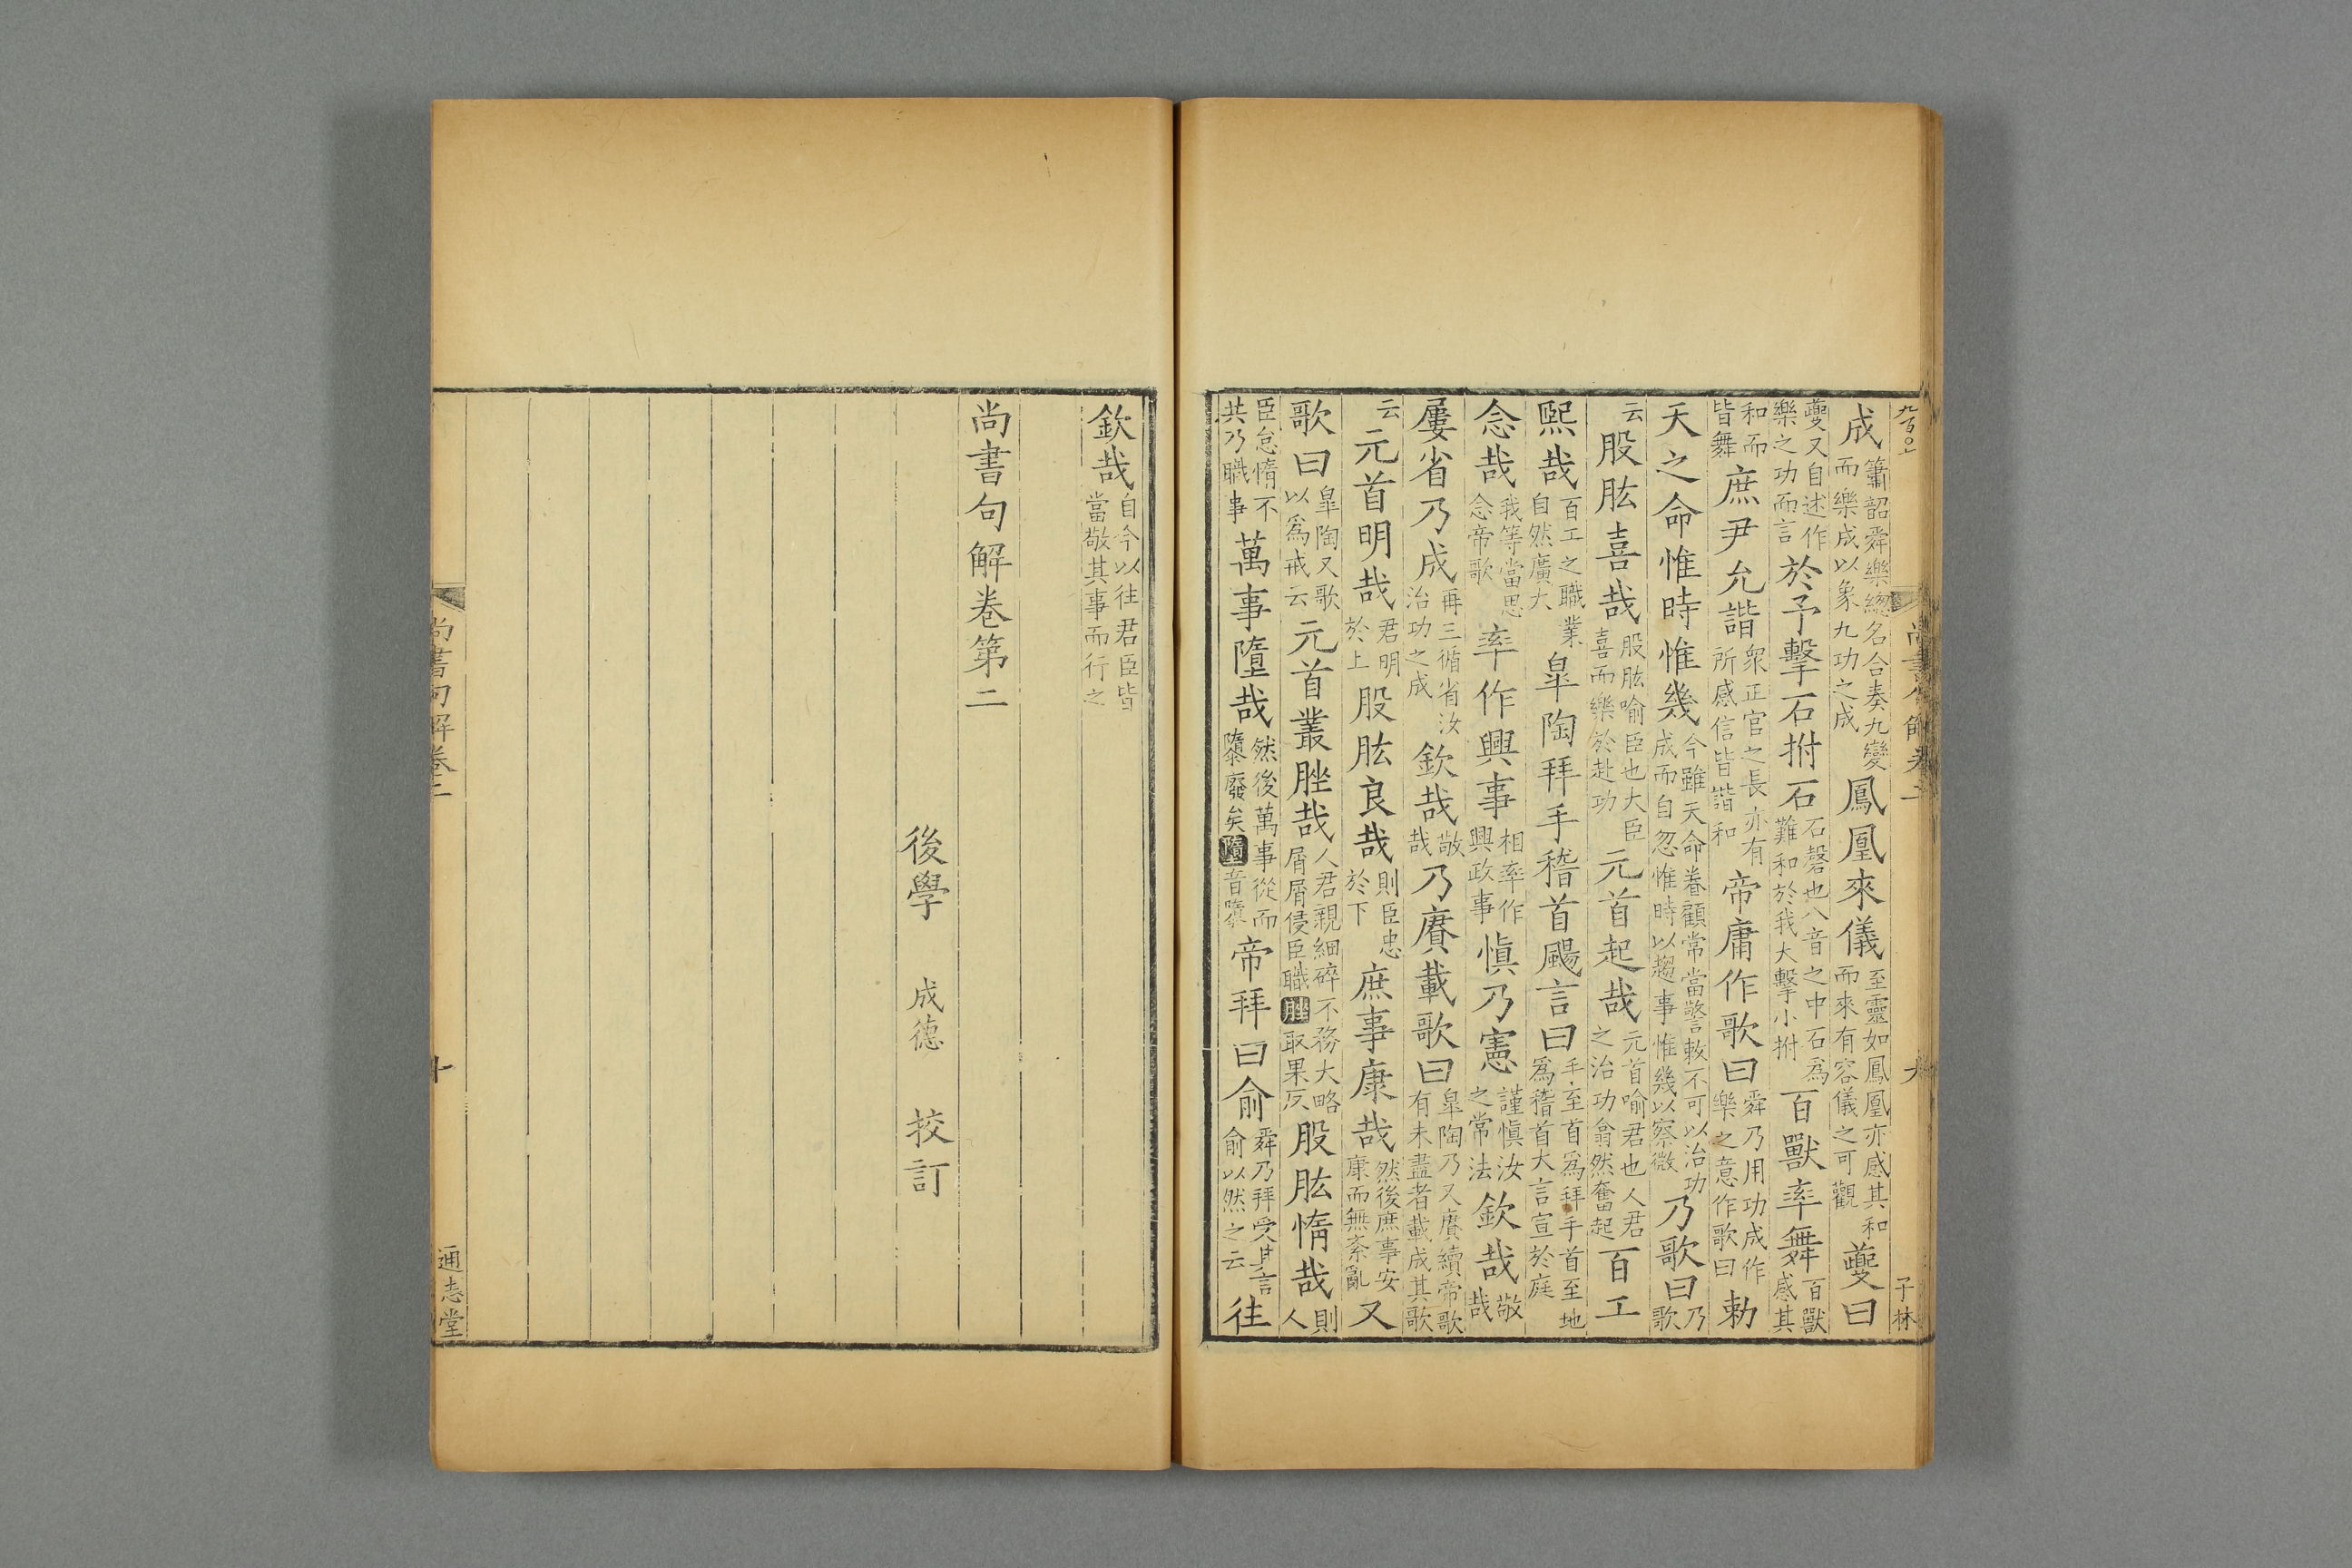 成簫韶舜樂總名合奏九變而樂成以象九功之成鳳凰來儀至靈如鳳凰亦感其和而來有容儀之可觀夔曰
夔又自述作樂之功而言於予擊石拊石石磬也八音之中石爲難和於我大擊小拊百獸率舞百獸感其
和而皆舞庶尹允諧衆正官之長亦有所感信皆諧和帝庸作歌曰舜乃用功成作樂之意作歌曰勅
天之命惟時惟幾今雖天命眷顧常當警敕不可以治功成而自忽惟時以趨事惟幾以察微乃歌曰乃歌
云股肱喜哉股肱喻臣也大臣喜而樂於赴功元首起哉元首喻君也人君之治功翕然奮起百工
熙哉百工之職業自然廣大皐陶拜手稽首颺言曰手至首爲拜手首至地爲稽首大言宣於庭
念哉我等當思念帝歌率作興事相率作興政事愼乃憲謹愼汝之常法欽哉敬哉
屢省乃成再三循省汝治功之成欽哉敬哉乃賡載歌曰皐陶乃又賡續帝歌有未盡者載成其歌
云元首明哉君明於上股肱良哉則臣忠於下庶事康哉然後庶事安康而無紊亂又
歌曰皐陶又歌以爲戒云元首叢脞哉人君親細碎不務大略屑屑侵臣職脞取果反股肱惰哉則人
臣怠惰不共乃職事萬事墮哉然後萬事從而隳廢矣墮音隳帝拜曰俞舜乃拜受其言俞以然之云往
九百〇一
尚書句解卷二
九
子林
欽哉自今以往君臣皆當敬其事而行之
尚書句解卷第二
後學 成德 校訂
尚書句解卷二
十
通志堂